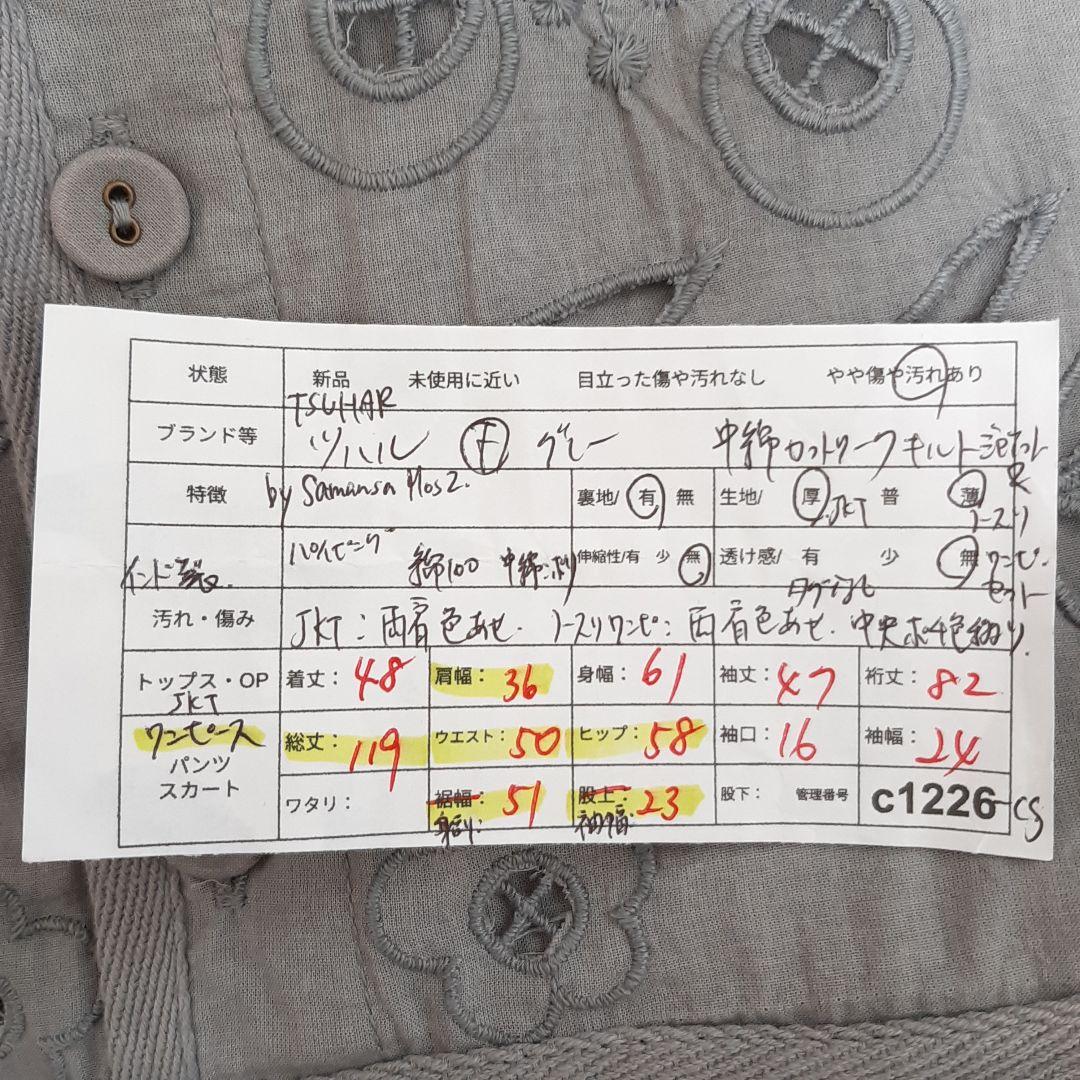 状態 新品 未使用に近い 目立った傷や汚れなし やや傷や汚れあり
TSUHAR
ブランド等 ツハル F グレー 中綿カットワークキルト
特徴 by Samansa Mos2. 裏地/ 有 無 生地/ 厚 普 薄
JKT ノースリ
パイピング 綿100 中綿:ポリ 伸縮性/有 少 無 透け感/ 有 少 無 ワンピ.
インド製. セット
タグなし
汚れ・傷み JKT:両肩色あせ. ノースリワンピ:両肩色あせ.中央
トップス・OP 着丈: 48 肩幅: 36 身幅: 61 袖丈: 47 裄丈: 82
JKT
ワンピース 総丈: 119 ウエスト: 50 ヒップ: 58 袖口: 16 袖幅: 24
パンツ
スカート ワタリ: 裾幅: 51 股上: 23 股下: 管理番号 c1226-cg
袖幅